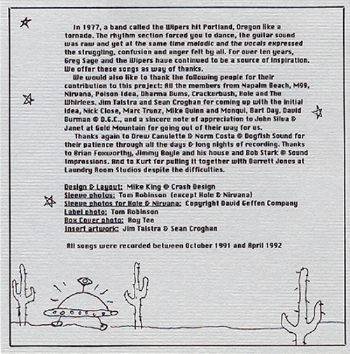 In 1977, a band called the Wipers hit Portland, Oregon like a
tornado. The rhythm section forced you to dance, the guitar sound
was raw and yet at the same time melodic and the vocals expressed
the struggling, confusion and anger felt by all. For over ten years,
Greg Sage and the Wipers have continued to be a source of inspiration.
We offer these songs as way of thanks.
We would also like to thank the following people for their
contribution to this project: All the members from Napalm Beach, M99,
Nirvana, Poison Idea, Dharma Bums, Crackerbash, Hole and The
Whirlees. Jim Talstra and Sean Croghan for coming up with the initial
idea, Nick Close, Marc Trunz, Mike Quinn and Monqui, Bart Day, David
Burman @ D.G.C., and a sincere note of appreciation to John Silva &
Janet at Gold Mountain for going out of their way for us.
Thanks again to Drew Canulette & Norm Costa @ Dogfish Sound for
their patience through all the days & long nights of recording. Thanks
to Brian Foxworthy, Jimmy Boyle and his house and Bob Stark @ Sound
Impressions. And to Kurt for pulling it together with Barrett Jones at
Laundry Room Studios despite the difficulties.
Design & Layout: Mike King @ Crash Design
Sleeve photos: Tom Robinson (except Hole & Nirvana)
Sleeve photos for Hole & Nirvana: Copyright David Geffen Company
Label photo: Tom Robinson
Box Cover photo: Roy Tee
Insert artwork: Jim Talstra & Sean Croghan
All songs were recorded between October 1991 and April 1992